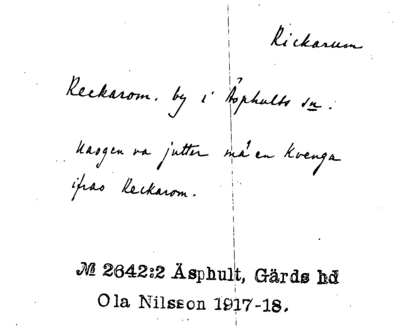 Rickarum
Reckarom. by i Äsphults sn.
Naogen va jutter må en Kvenga
ifrao Reckarom.
№ 2642:2 Äsphult, Gärds hd
Ola Nilsson 1917-18.